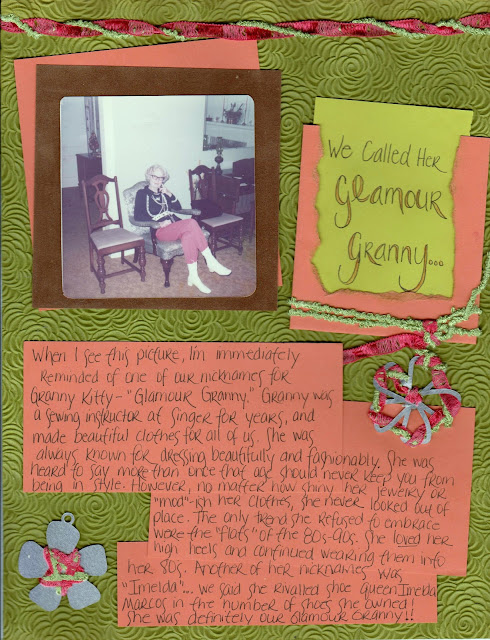 We Called Her
Glamour
Granny...
When I see this picture, I'm immediately
reminded of one of our nicknames for
Granny Kitty- "Glamour Granny." Granny was
a sewing instructor at Singer for years, and
made beautiful clothes for all of us. She was
always known for dressing beautifully and fashionably. She was
heard to say more than once that age should never keep you from
being in style. However, no matter how shiny her jewelry or
"mod"-ish her clothes, she never looked out of
place. The only trend she refused to embrace
were the "flats" of the 80s-90s. She loved her
high heels and continued wearing them into
her 80s. Another of her nicknames was
"Imelda"... we said she rivalled shoe queen Imelda
Marcos in the number of shoes she owned!
She was definitely our Glamour Granny!!